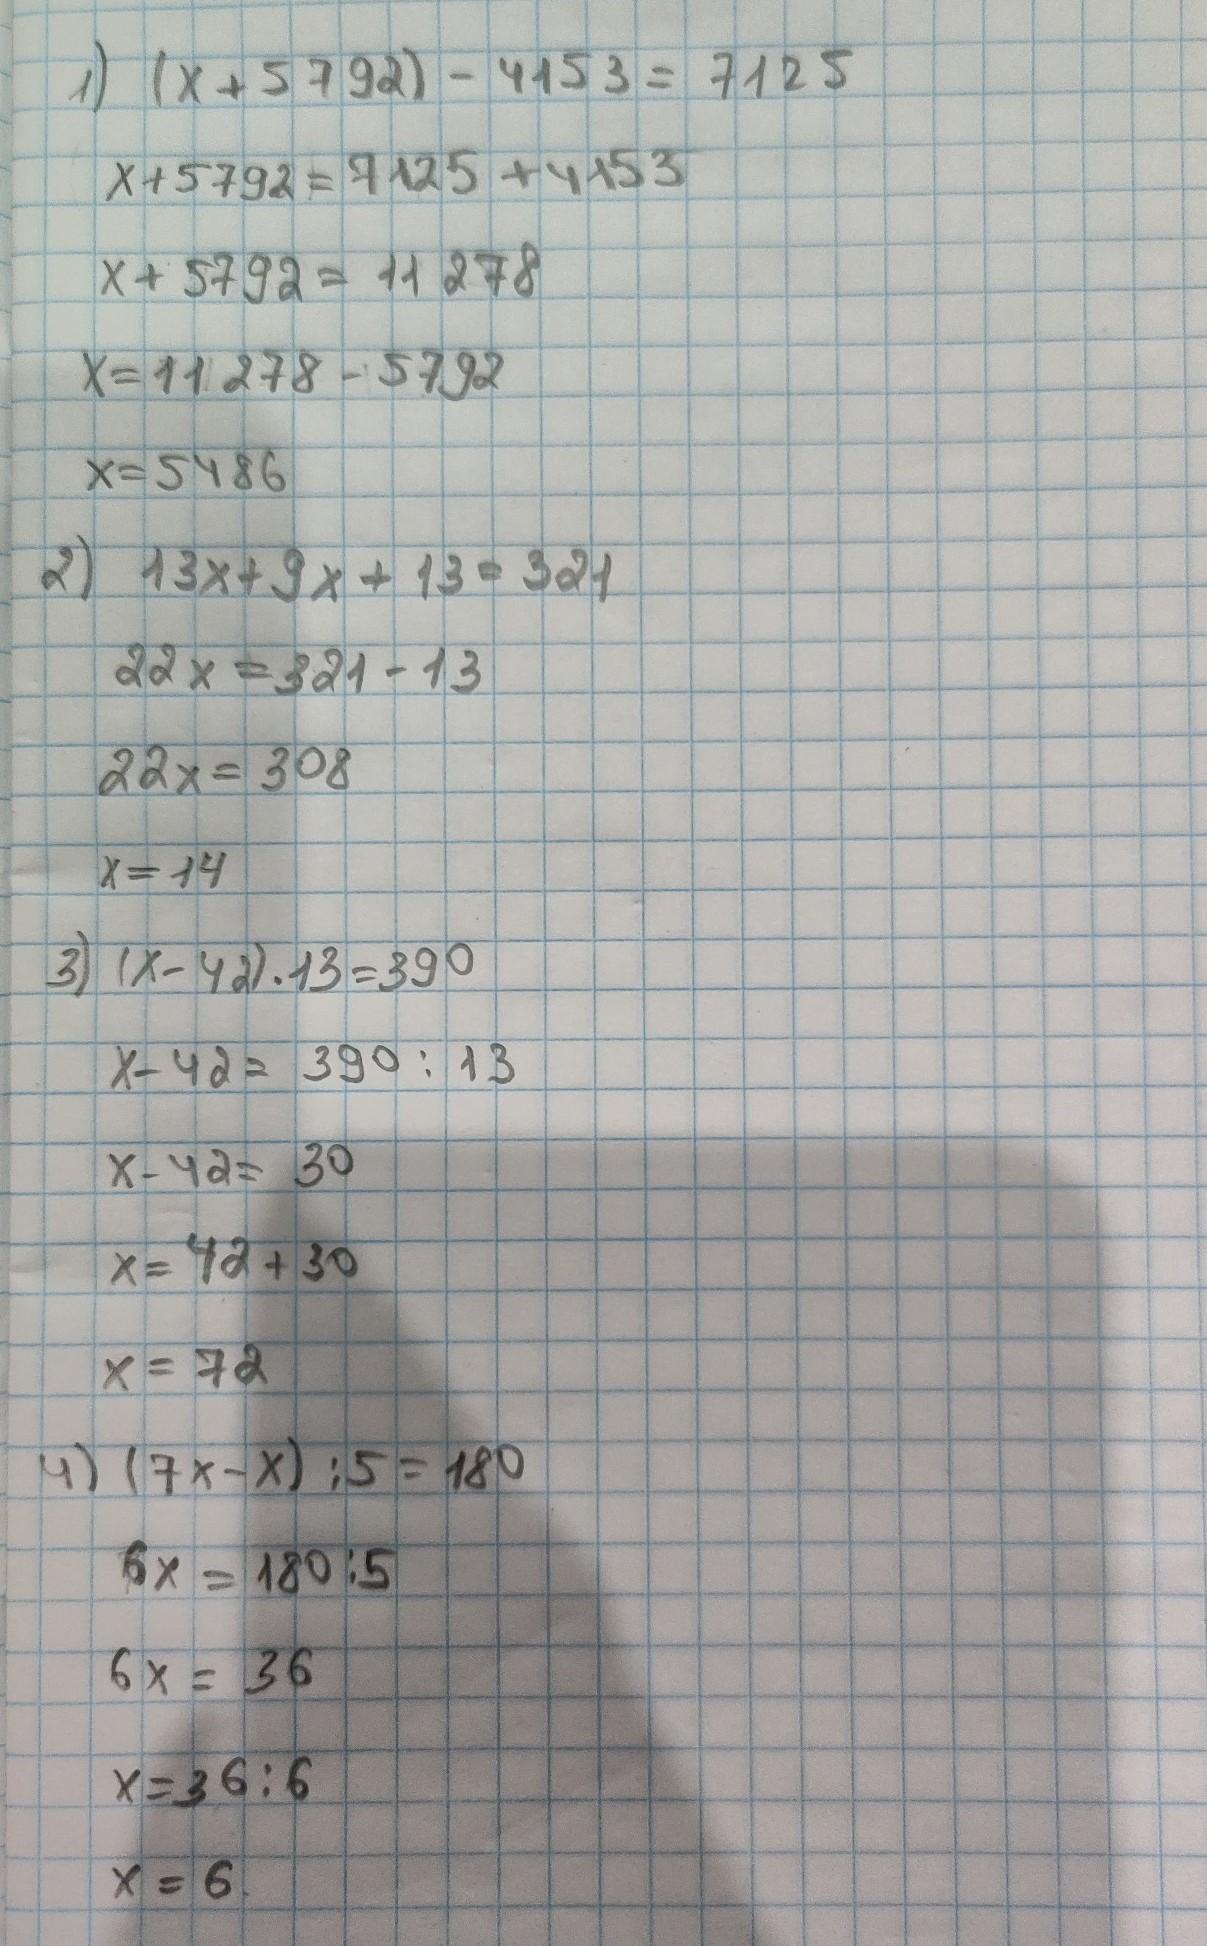 1) (x+5792) - 4153 = 7125
x+5792 = 7125 + 4153
x + 5792 = 11 278
x = 11 278 - 5792
x = 5486
2) 13x + 9x + 13 = 321
22x = 321 - 13
22x = 308
x = 14
3) (x - 42) · 13 = 390
x - 42 = 390 : 13
x - 42 = 30
x = 42 + 30
x = 72
4) (7x - x) : 5 = 180
6x = 180 : 5
6x = 36
x = 36 : 6
x = 6.